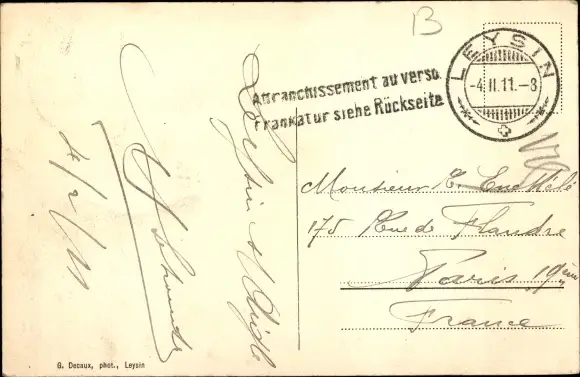 B
LEYSIN
-4.II.11.-8
Affranchissement au verso.
Frankatur siehe Rückseite
Monsieur E.
175 Rue de Flandre
Paris 19ème
France
Leysin s/ Aigle
4/2/11
G. Decaux, phot., Leysin